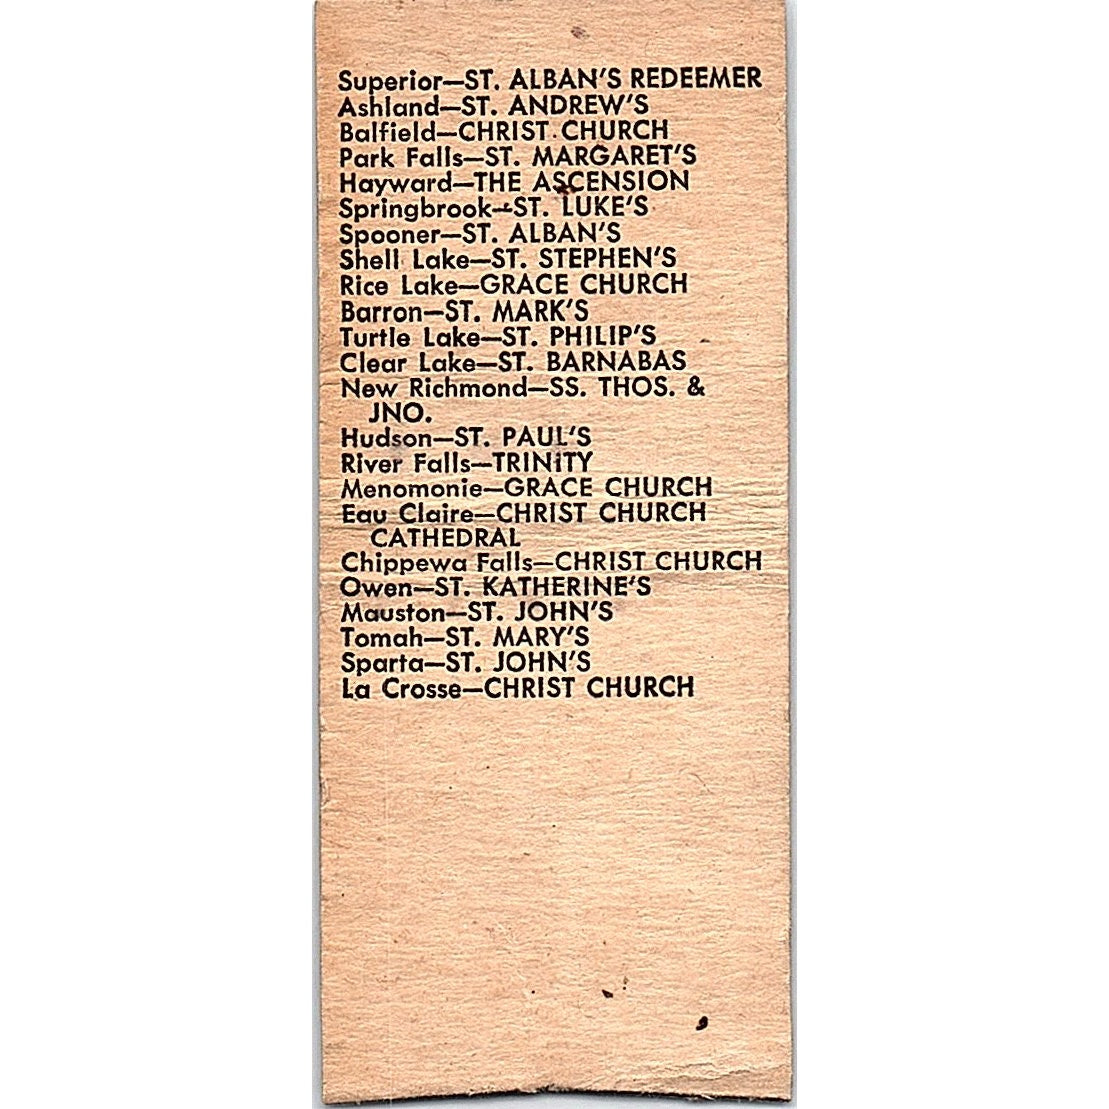 Superior—ST. ALBAN'S REDEEMER
Ashland—ST. ANDREW'S
Balfield—CHRIST CHURCH
Park Falls—ST. MARGARET'S
Hayward—THE ASCENSION
Springbrook—ST. LUKE'S
Spooner—ST. ALBAN'S
Shell Lake—ST. STEPHEN'S
Rice Lake—GRACE CHURCH
Barron—ST. MARK'S
Turtle Lake—ST. PHILIP'S
Clear Lake—ST. BARNABAS
New Richmond—SS. THOS. &
JNO.
Hudson—ST. PAUL'S
River Falls—TRINITY
Menomonie—GRACE CHURCH
Eau Claire—CHRIST CHURCH
CATHEDRAL
Chippewa Falls—CHRIST CHURCH
Owen—ST. KATHERINE'S
Mauston—ST. JOHN'S
Tomah—ST. MARY'S
Sparta—ST. JOHN'S
La Crosse—CHRIST CHURCH